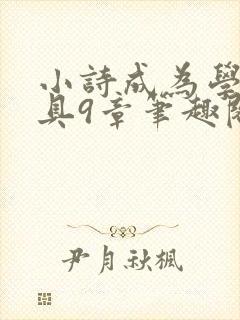 小詩成為學
具9章筆趣閣
尹月秋楓